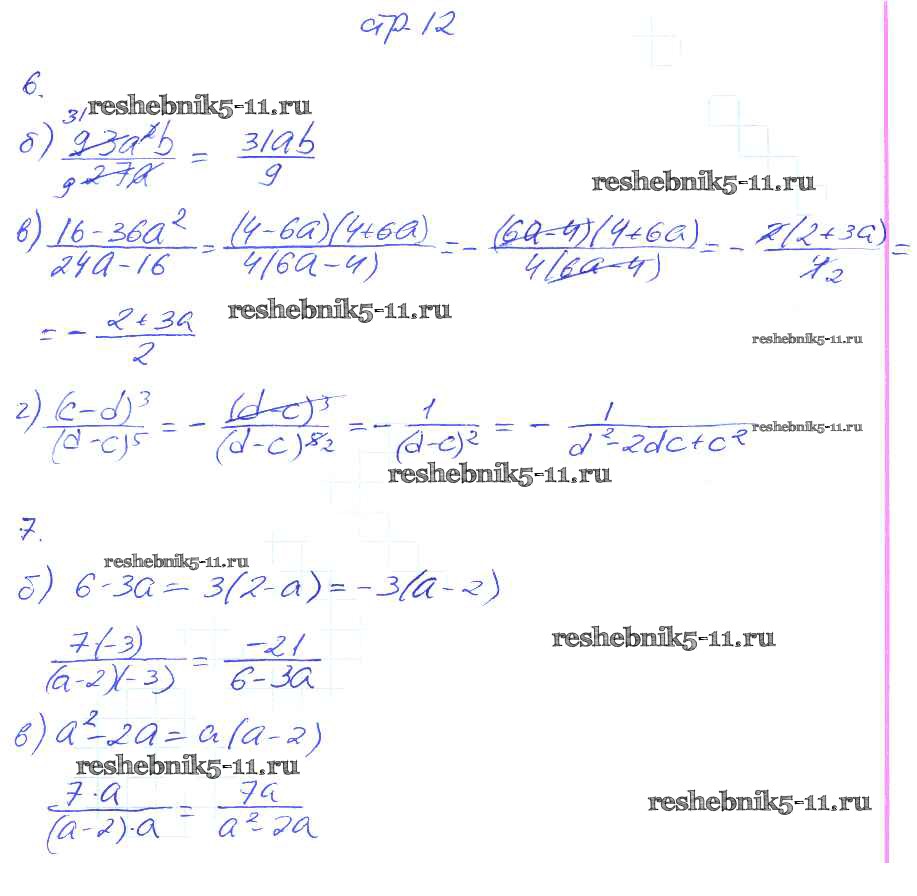 стр. 12
6.
reshebnik5-11.ru
б) 93a²b/27a = 31ab/9
31
9
reshebnik5-11.ru
в) (16-36a²)/(24a-16) = (4-6a)(4+6a)/4(6a-4) = - (6a-4)(4+6a)/4(6a-4) = - 2(2+3a)/4 2 =
= - (2+3a)/2
reshebnik5-11.ru
reshebnik5-11.ru
г) (c-d)³/(d-c)⁵ = - (d-c)³/(d-c)⁵ 2 = - 1/(d-c)² = - 1/(d²-2dc+c²)
reshebnik5-11.ru
reshebnik5-11.ru
7.
reshebnik5-11.ru
б) 6-3a = 3(2-a) = -3(a-2)
reshebnik5-11.ru
7(-3)/(a-2)(-3) = -21/(6-3a)
в) a²-2a = a(a-2)
reshebnik5-11.ru
7·a/(a-2)·a = 7a/(a²-2a)
reshebnik5-11.ru